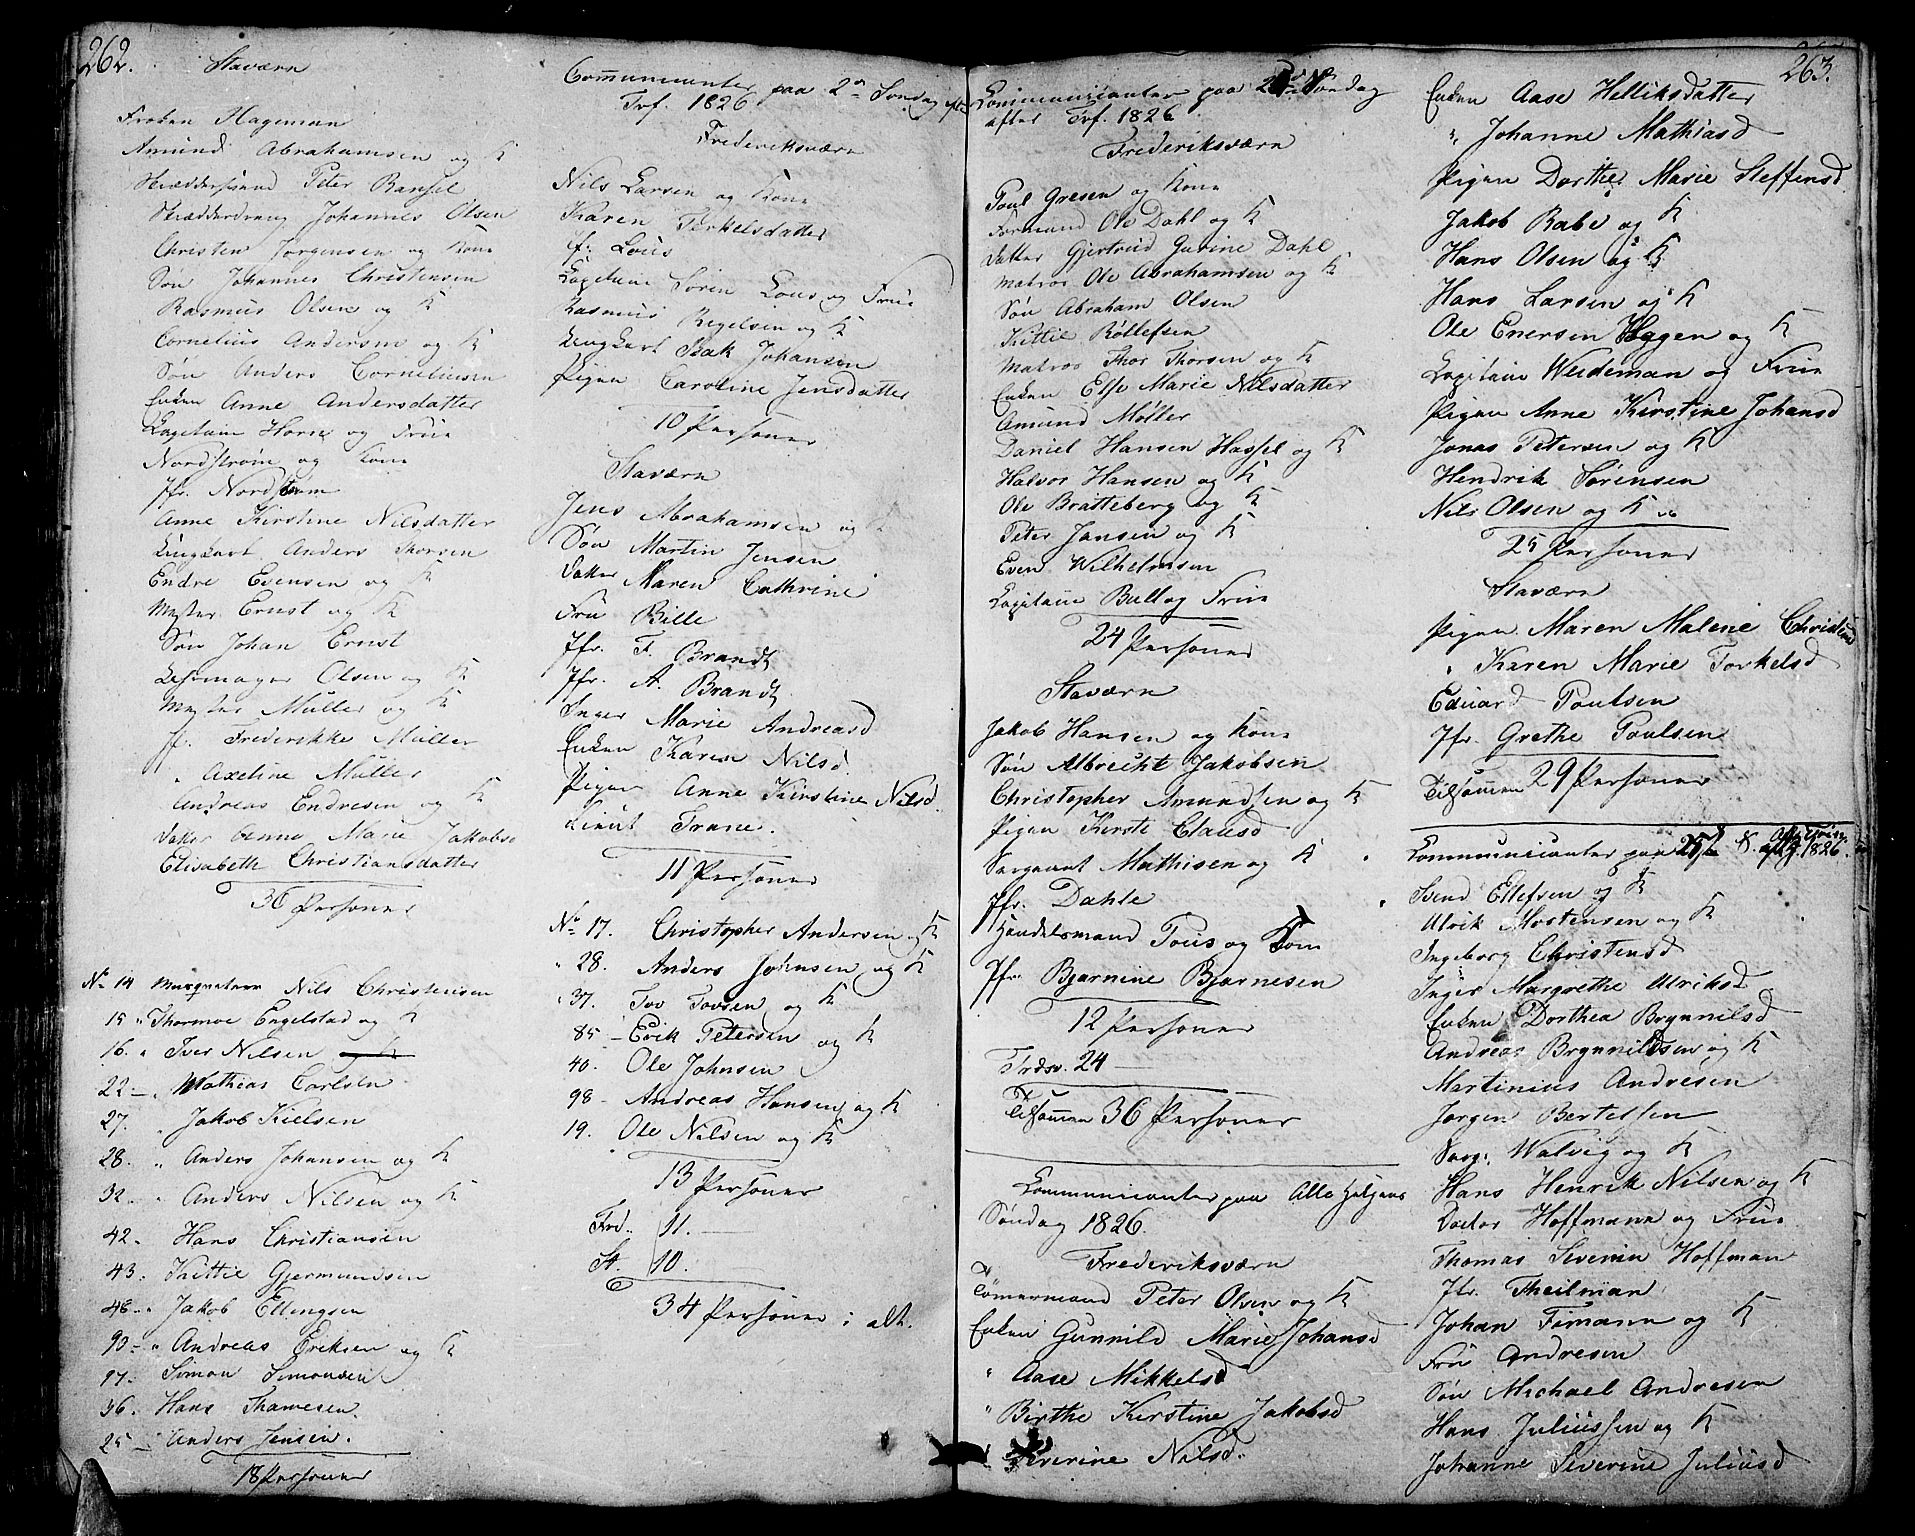 262.
Staværn
Frøken Hageman
Amund Abrahamsen og K
Skræddersvend Peter Bansel
Skrædderdreng Johannes Olsen
Christen Jørgensen og Kone
Søn Johannes Christensen
Rasmus Olsen og K
Cornelius Andersen og K
Søn Anders Corneliusen
Enken Anne Andersdatter
Capitain Horn og Frue
Nordstrøm og Kone
Jfr. Nordstrøm
Anne Kirstine Nilsdatter
Anders Thorsen
Endre Evensen og K
Mester Ernst og K
Søn Johan Ernst
Olsen og K
Mester Müller og K
Jf. Frederikke Müller
" Axeline Müller
Andreas Endresen og K
Datter Anne Marie Jakobsd
Elisabeth Christiansdatter
36 Personer
No 14 Musqueteer Nils Christensen
15 " Thormoe Engelstad og K
16. " Iver Nilsen
22 - " Mathias Carlsen
27. " Jakob Kielsen
28. " Anders Johansen og K
32 - " Anders Nilsen og K
42. Hans Christiansen
43. Kittil Gjermundsen
48 - " Jakob Ellingsen
90 - " Andreas Eriksen og K
97. Simon Simonsen
36. Hans Thamesen.
25 - Anders Jensen.
18 Personer
Communicanter paa 2den Søndag efter
Trf. 1826
Frederiksværn
Nils Larsen og Kone
Karen Terkelsdatter
Jf. Lous
Capitain Søren Lous og Frue
Rasmus Regelsen og K
Isak Johansen
Pigen Caroline Jensdatter
10 Personer
Staværn
Jens Abrahamsen og K
Søn Martin Jensen
Datter Maren Cathrine
Fru Bille
Jfr. F. Brandt
Jfr. A. Brandt
Inger Marie Andreasd
Enken Karen Nilsd.
Pigen Anne Kirstine Nilsd.
Lieut Trane.
11 Personer
No 17. Christopher Andersen og K
" 28. Anders Jørnsen og K
" 37. Tov Tovsen og K
85 - Erik Petersen og K
40. Ole Johnsen
98 - Andreas Hansen og K
19. Ole Nilsen og K
13 Personer
Frd. 11. -
St. 10.
34 Personer i alt.
263.
Communicanter paa Søndag
efter Trf. 1826
Frederiksværn
Poul Gresen og Kone
Formand Ole Dahl og K
Datter Gjertrud Gurine Dahl
Matros Ole Abrahamsen og K
Søn Abraham Olsen
Kittil Røllefsen
Matros Thor Thorsen og K
Enken Else Marie Nilsdatter
Amund Møller
Daniel Hansen Hassel og K
Halvor Hansen og K
Ole Bratteberg og K
Peter Jansen og K
Even Wilhelmsen
Capitain Bull og Frue
24 Personer
Staværn
Jakob Hansen og Kone
Søn Albrecht Jakobsen
Christopher Amundsen og K
Pigen Kirste Clausd
Sergeant Mathisen og K
Jfr. Dahle
Handelsmand Tous og Kone
Jfr. Bjørnine Bjørnesen
12 Personer
Frdsv. 24 -
Tilsammen 36 Personer
Communicanter paa Alle Helgens
Søndag 1826.
Frederiksværn
Tømermand Peter Olsen og K
Enken Gunnild Marie Johansd
" Aase Mikkelsd
" Birthe Kirstine Jakobsd
Severine Nilsd.
Enken Aase Helliksdatter
" Johanne Mathiasd
Pigen Dorthe Marie Steffensd
Jakob Rabe og K
Hans Olsen og K
Hans Larsen og K
Ole Enersen Hagen og K
Capitain Weideman og Frue
Pigen Anne Kirstine Johansd
Jonas Petersen og K
Hendrik Sørensen
Nils Olsen og K
25 Personer
Staværn
Pigen Maren Malene
" Karen Marie Torkelsd
Eduard Poulsen
Jfr. Grethe Poulsen
Tilsammen 29 Personer
Communicanter paa 25de S. 1826.
Svend Ellefsen og K
Ulrik Mortensen og K
Ingeborg Christensd
Inger Margrethe Ulriksd
Enken Dorthea Brynnilsd
Andreas Brynnildsen og K
Martinius Andresen
Jørgen Bertelsen
Serg. Walvig og K
Hans Henrik Nilsen og K
Doctor Hoffmann og Frue
Thomas Severin Hoffman
Jfr. Theilman
Johan Fimann og K
Fru Andresen
Søn Michael Andresen
Hans Juliussen og K
Johanne Severine Juliusd